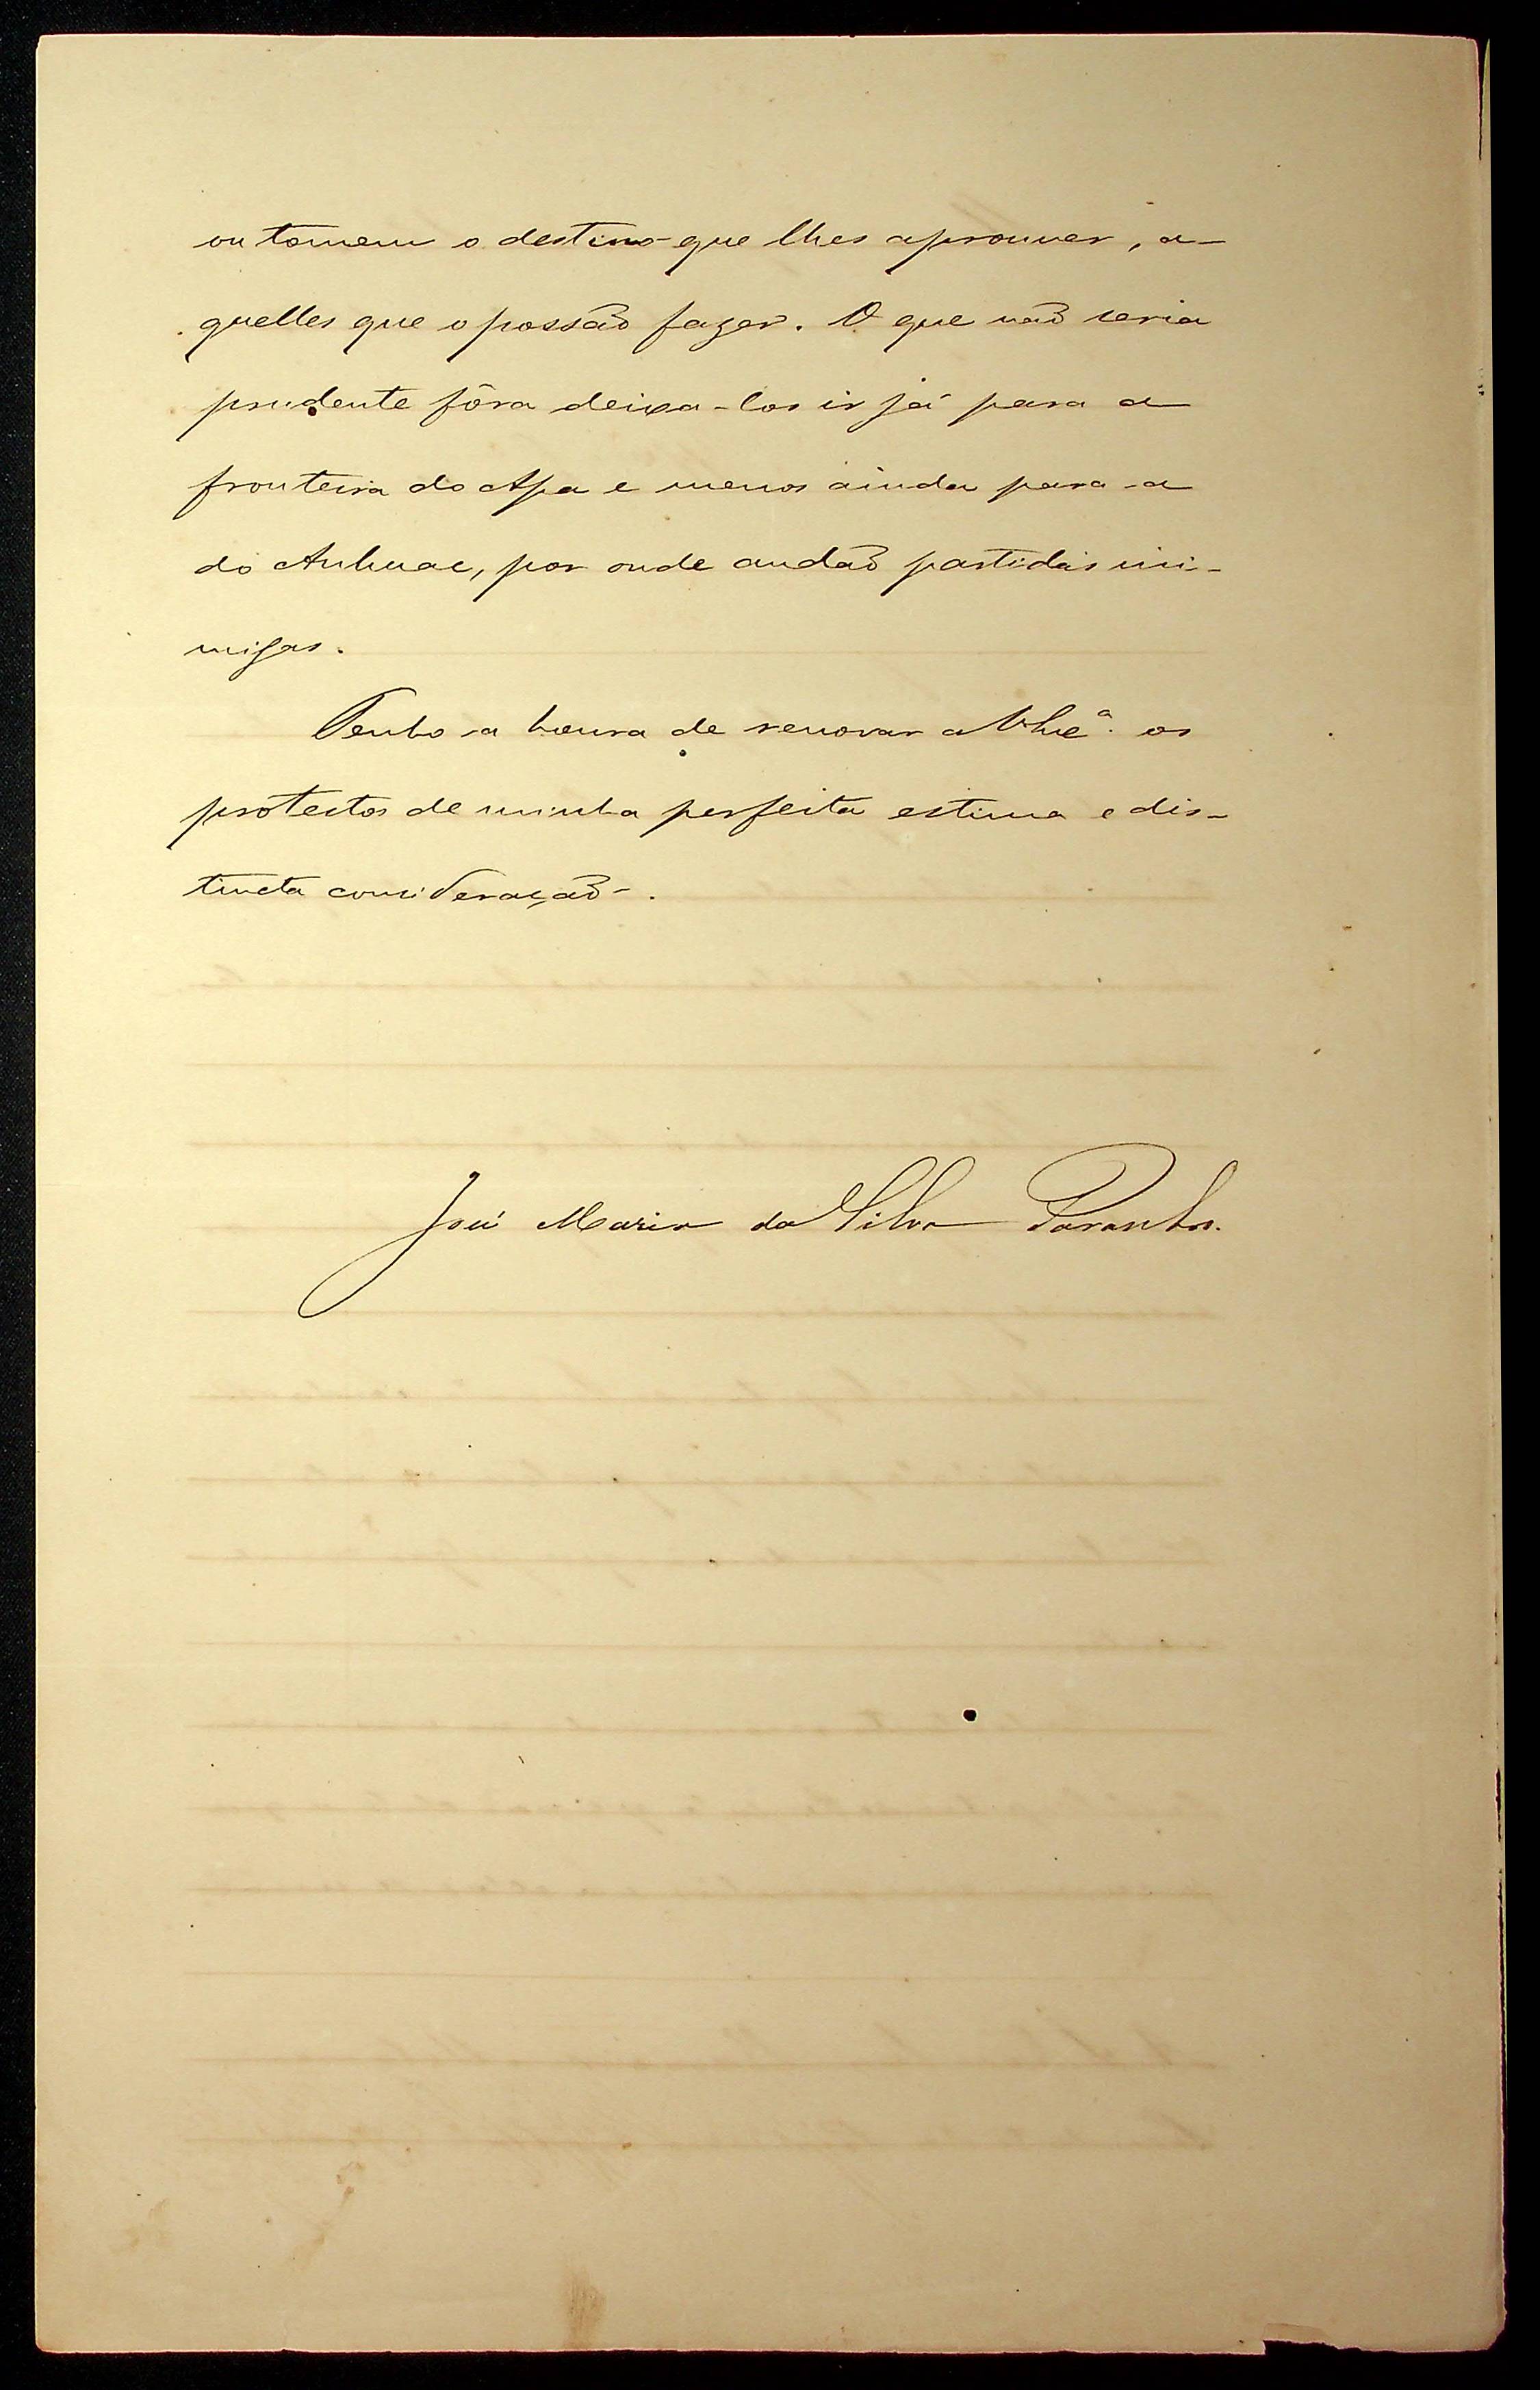 ou tomem o destino que lhes aprouver, a-
quelles que o possão fazer. O que não seria
prudente fôra deixa-los ir já para a
fronteira do Apa e menos ainda para a
do Anhuac, por onde andão partidas ini-
migas.
Tenho a honra de renovar a VExcª. os
protestos de minha perfeita estima e dis-
tincta consideração.
José Maria da Silva Paranhos.